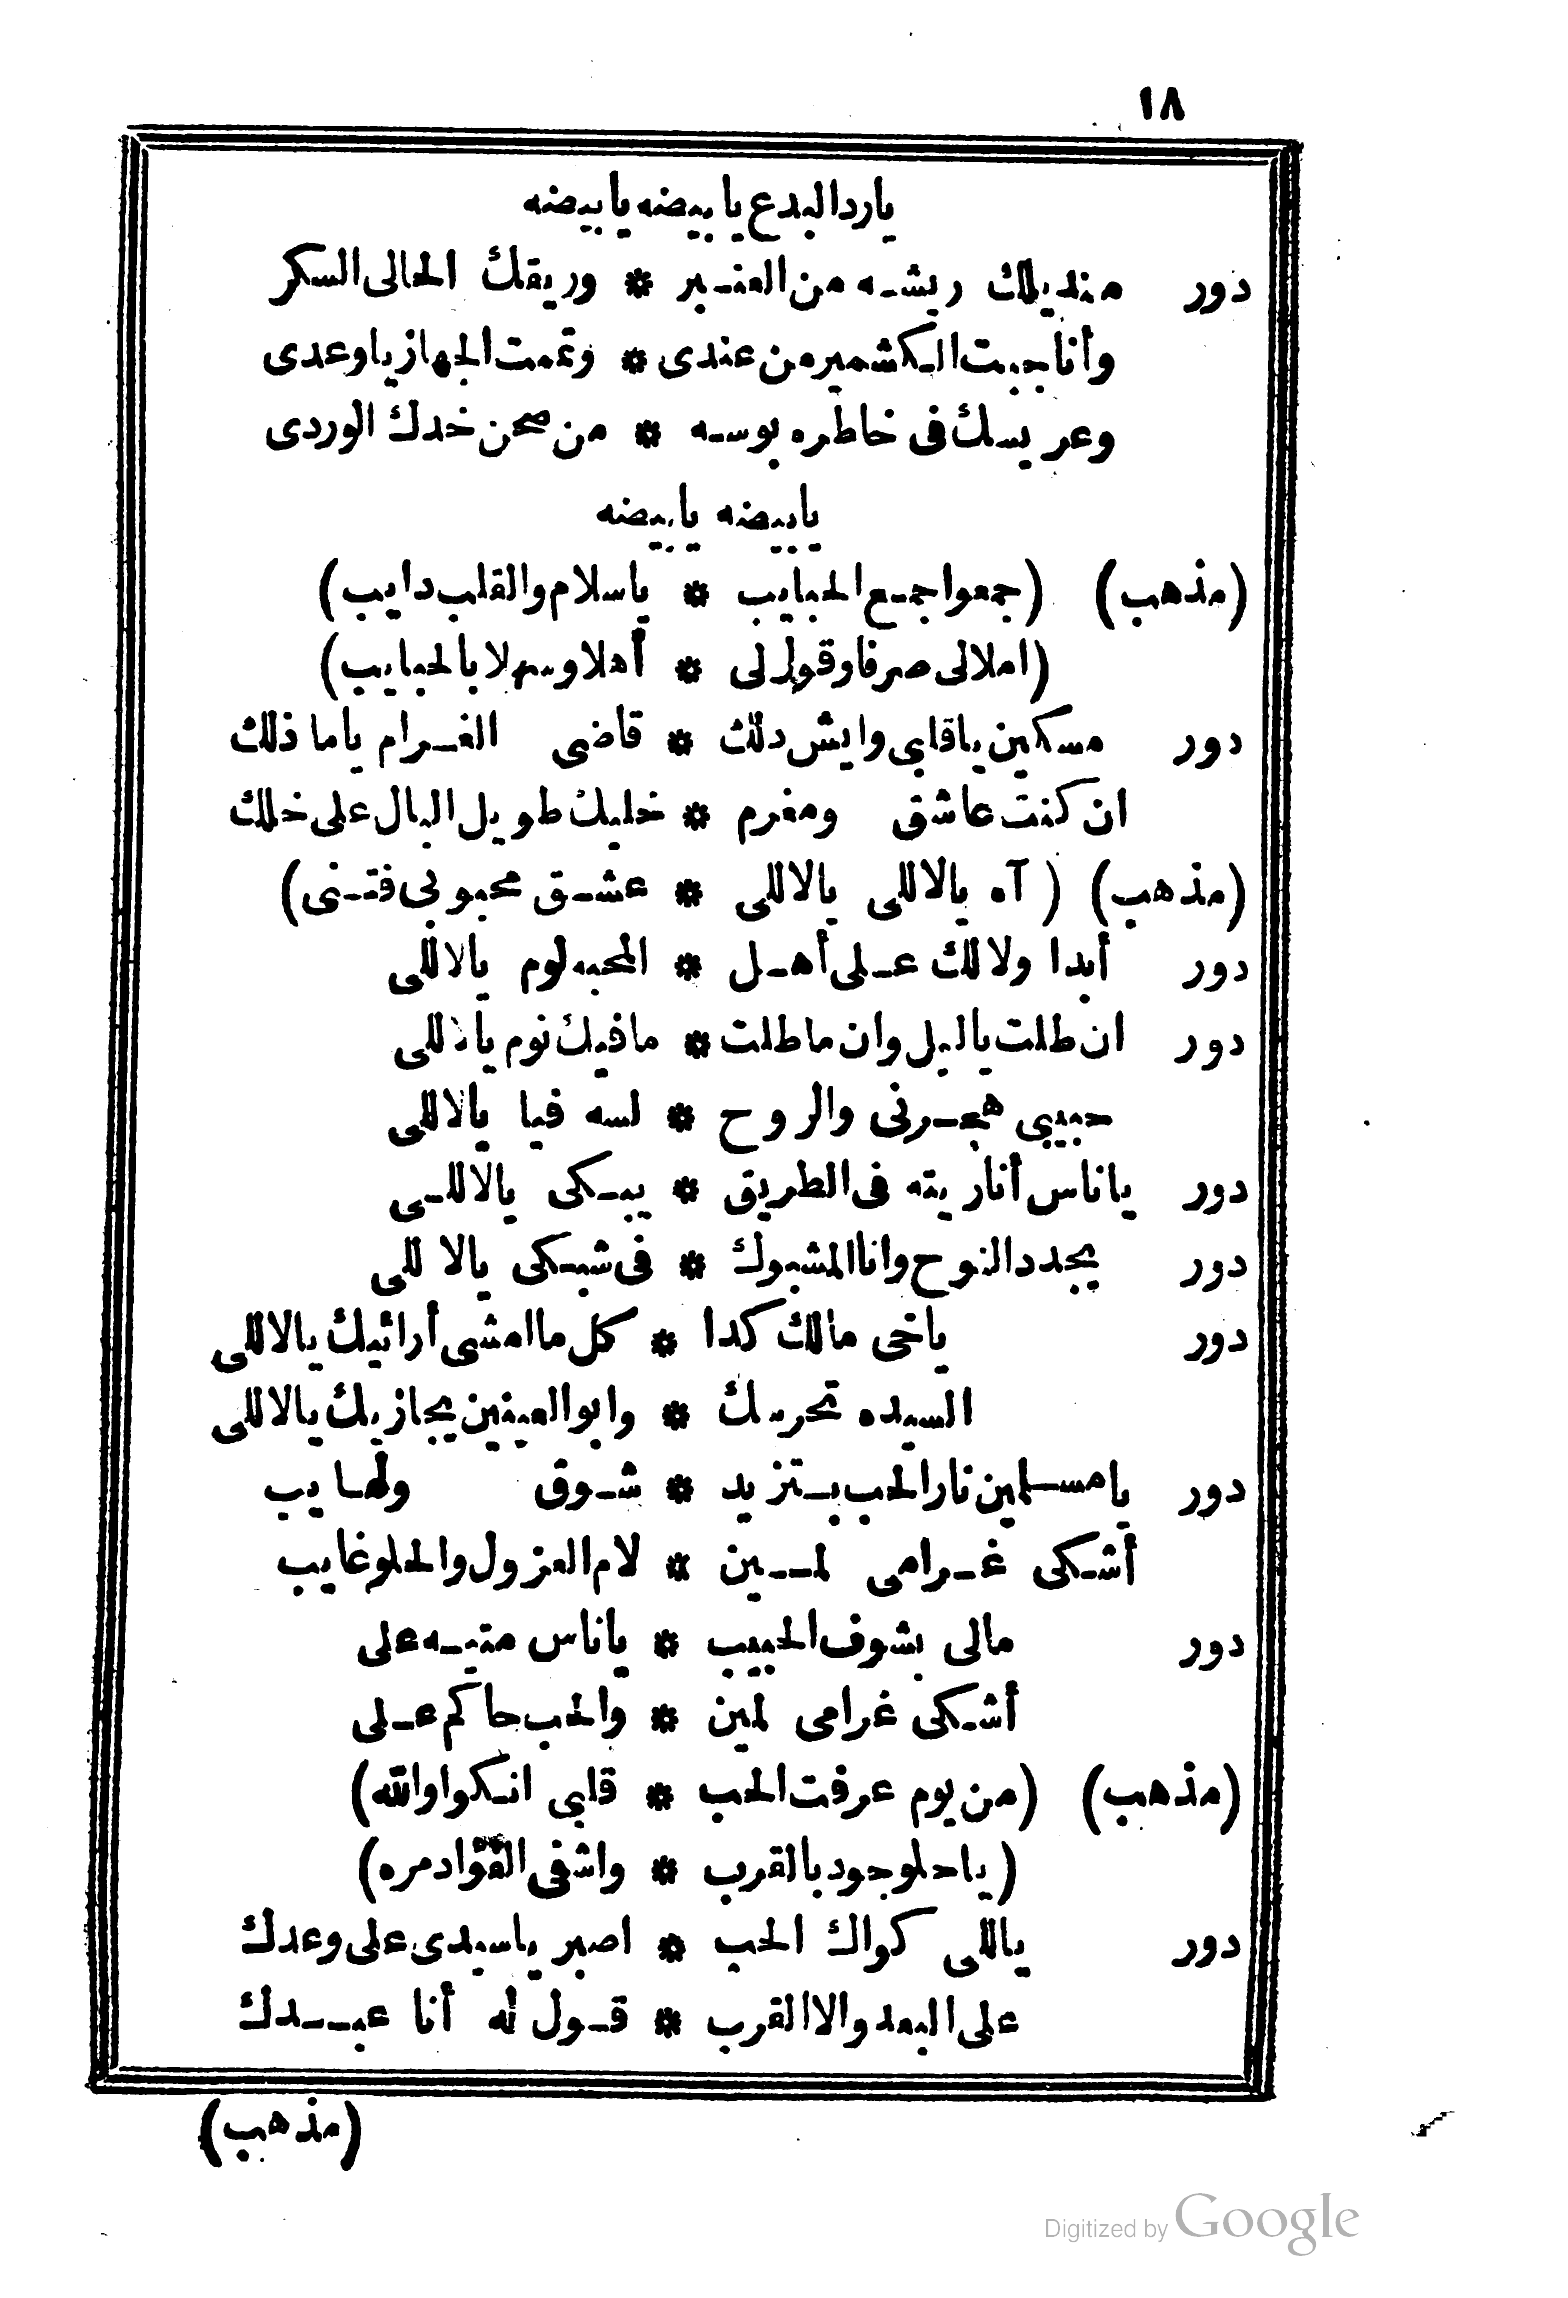 ١٨
ياردالبدع يابيضه يابيضه
دور منديلك ريشه من العنبر * وريقك الحالى السكر
وأناجبت الكشميرمن عندى * وتممت الجهاز ياوعدى
وعريسك فى خاطره بوسه * من صحن خدك الوردى
يابيضه يابيضه
(مذهب) (جمعواجميع الحبايب * ياسلام والقلب دايب)
(املالى صرفاوقول لى * أهلاوسهلابالحبايب)
دور مسكين ياقلبى وايش دلك * قاضى الغرام ياما ذلك
ان كنت عاشق ومغرم * خليك طويل البال على خلك
(مذهب) (آه يالاللى يالاللى * عشق محبوبى فتنى)
دور أبدا ولالك على أهل * المحبه لوم يالاللى
دور ان طلت ياليل وان ماطلت * مافيك نوم يالاللى
حبيبى هجرنى والروح * لسه فيا يالاللى
دور ياناس أناريته فى الطريق * يبكى يالاللى
دور يجددالنوح واناالمشبوك * فى شبكى يالاللى
دور ياخى مالك كدا * كل ماامشى أرائيك يالاللى
السيده تحرسك * وابوالعينين يجازيك يالاللى
دور يامسلمين نارالحب بتزيد * شوق ولهايب
أشكى غرامى لمين * لام العزول والحلوغايب
دور مالى بشوف الحبيب * ياناس متيه على
أشكى غرامى لمين * والحب حاكم على
(مذهب) (من يوم عرفت الحب * قلبى انكواوالله)
(ياحلوجودبالقرب * واشفى الفؤادمره)
دور ياللى كواك الحب * اصبر ياسيدى على وعدك
على البعدوالاالقرب * قول له أنا عبدك
(مذهب)
Digitized by Google